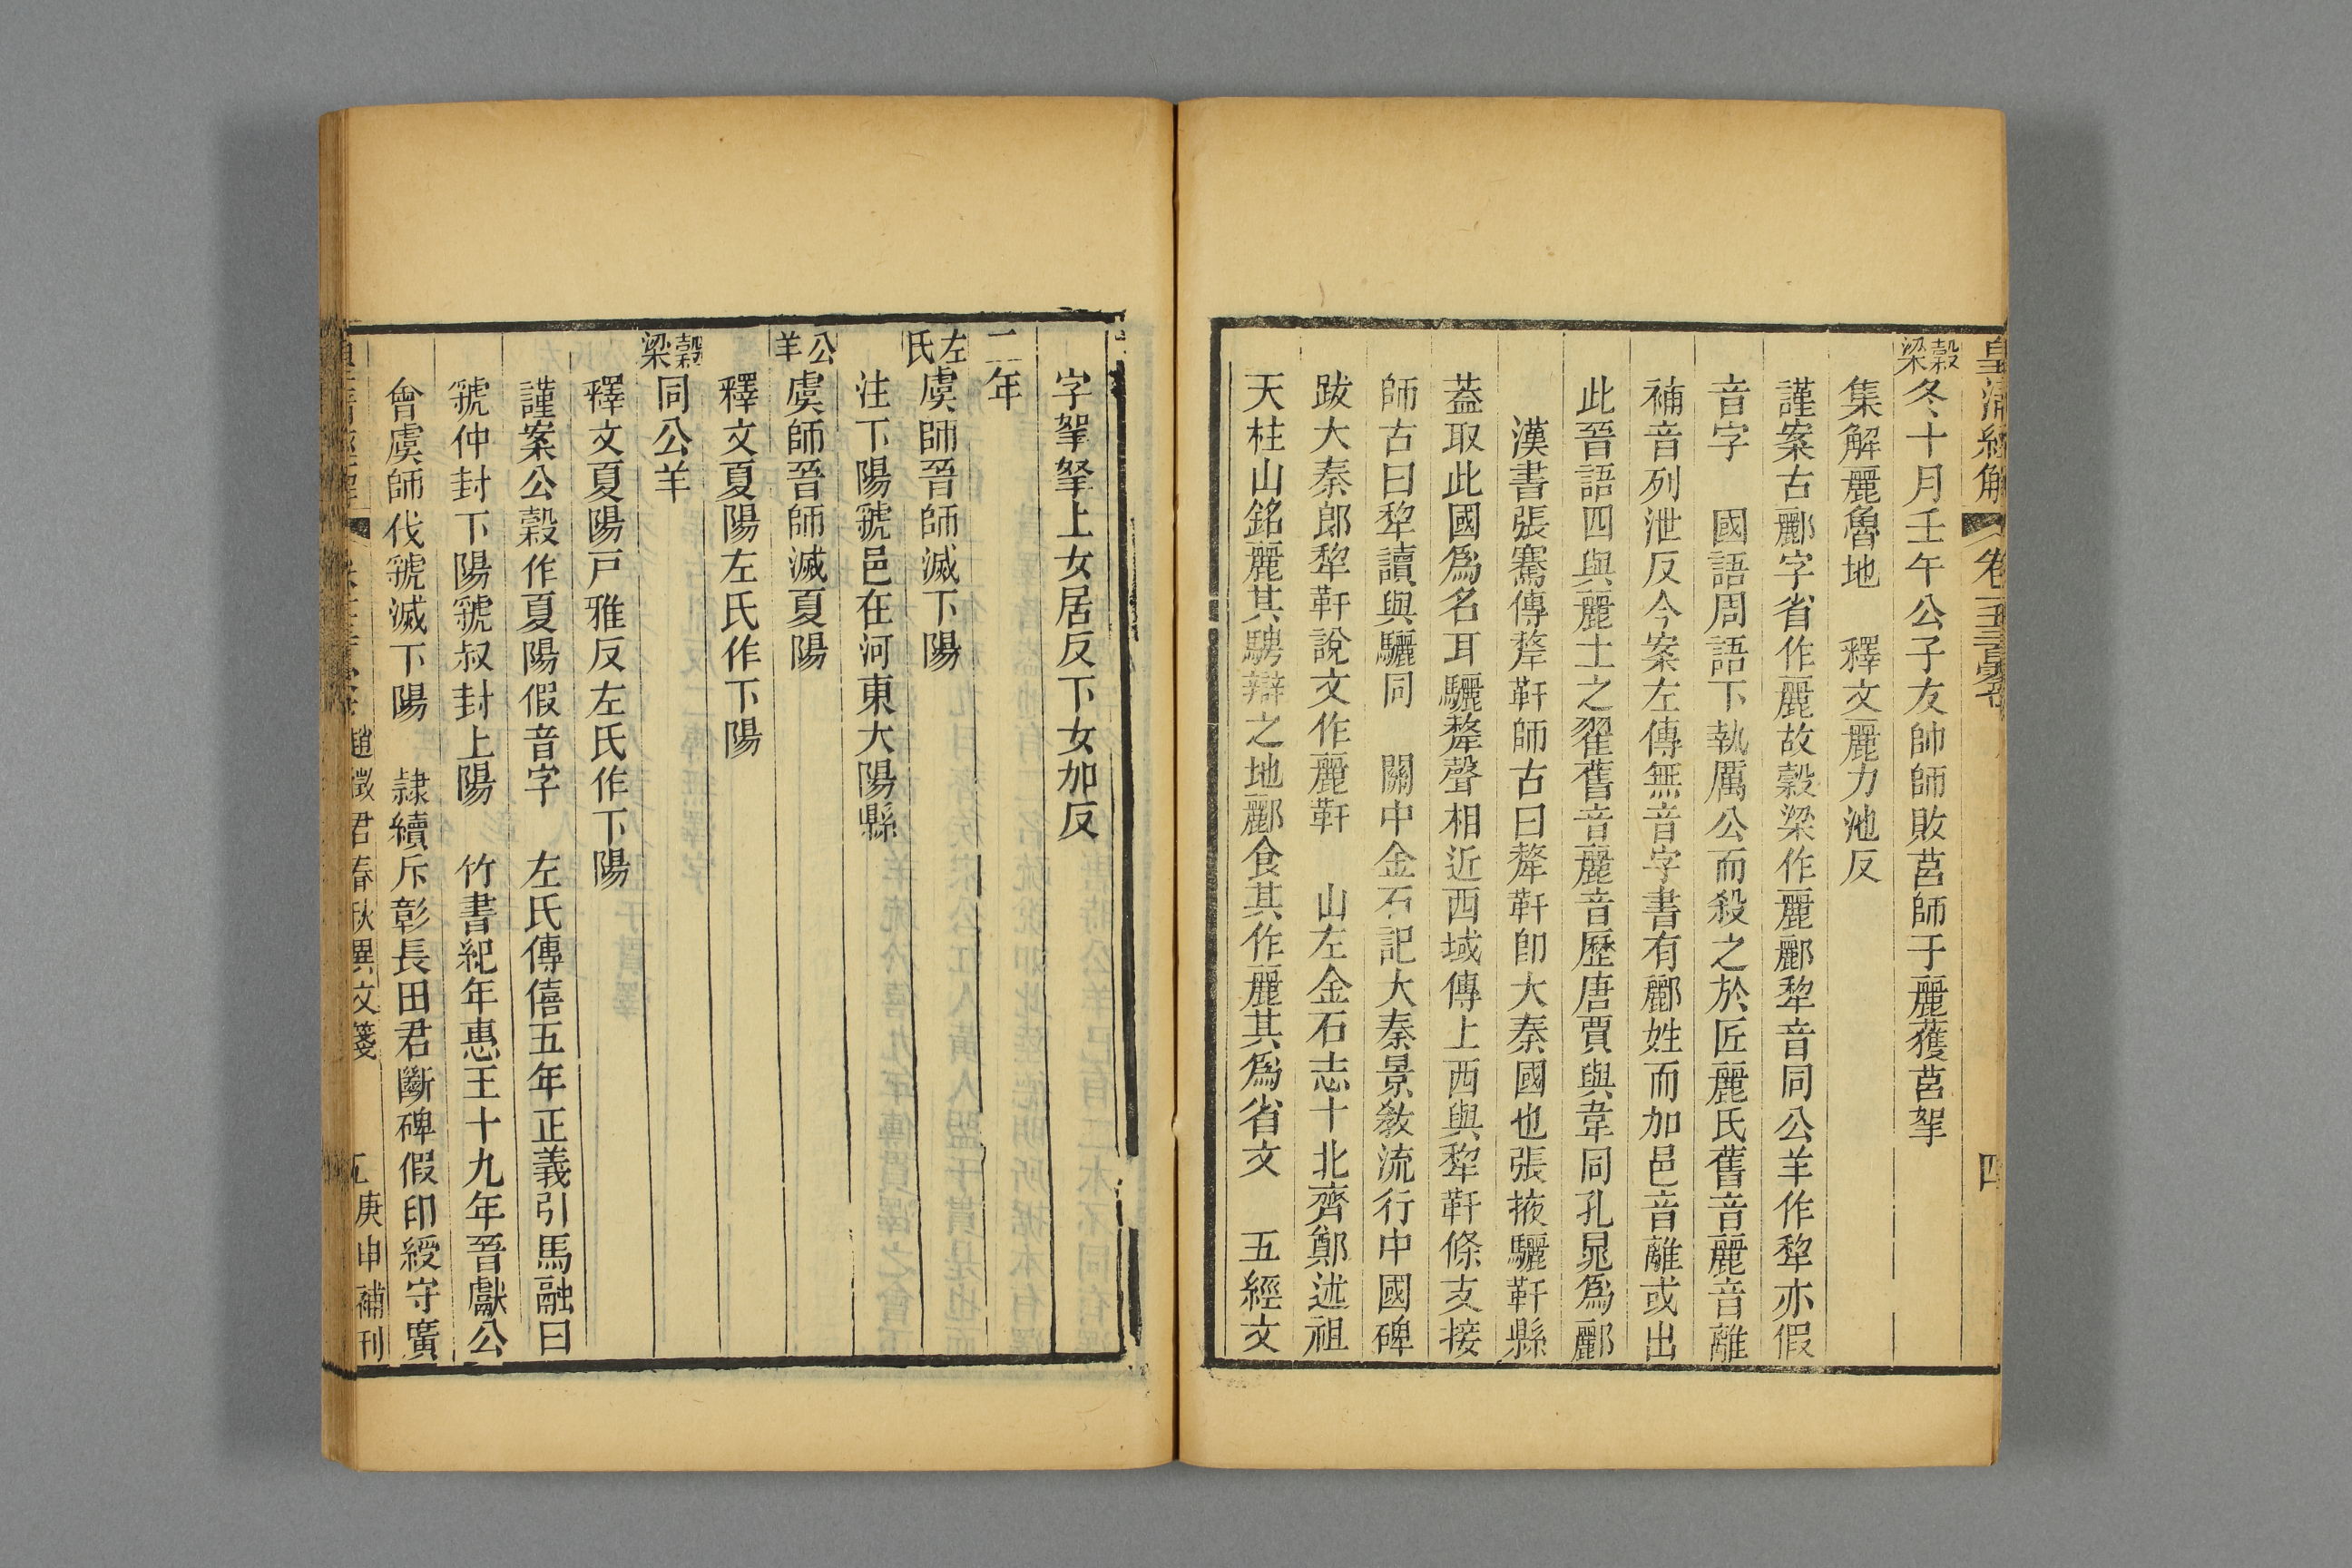 皇清經解
四
穀梁冬十月壬午公子友帥師敗莒師于麗獲莒挐
集解麗魯地　釋文麗力池反
謹案古酈字省作麗故穀梁作麗酈犂音同公羊作犂亦假
音字　國語周語下執厲公而殺之於匠麗氏舊音麗音離
補音列泄反今案左傳無音字書有酈姓而加邑音離或出
此晉語四與麗土之翟舊音麗音歷唐賈與韋同孔晁爲酈
漢書張騫傳犛軒師古曰犛軒卽大秦國也張掖驪軒縣
葢取此國爲名耳驪犛聲相近西域傳上西與犂軒條支接
師古曰犂讀與驪同　關中金石記大秦景敎流行中國碑
跋大秦郎犂軒說文作麗軒　山左金石志十北齊鄭述祖
天柱山銘麗其騁辯之地酈食其作麗其爲省文　五經文
字挐拏上女居反下女加反
二年
左氏虞師晉師滅下陽
注下陽虢邑在河東大陽縣
公羊虞師晉師滅夏陽
釋文夏陽左氏作下陽
穀梁同公羊
釋文夏陽戸雅反左氏作下陽
謹案公穀作夏陽假音字　左氏傳僖五年正義引馬融曰
虢仲封下陽虢叔封上陽　竹書紀年惠王十九年晉獻公
會虞師伐虢滅下陽　隷續斥彰長田君斷碑假印綬守廣
趙徵君春秋異文箋
五
庚申補刊